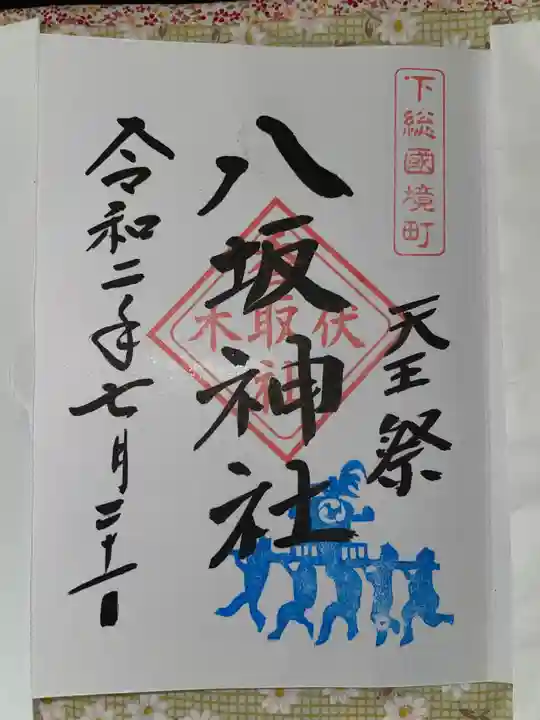 下総國境町
天王祭
八坂神社
伏木
香取神社
令和二年七月二十一日